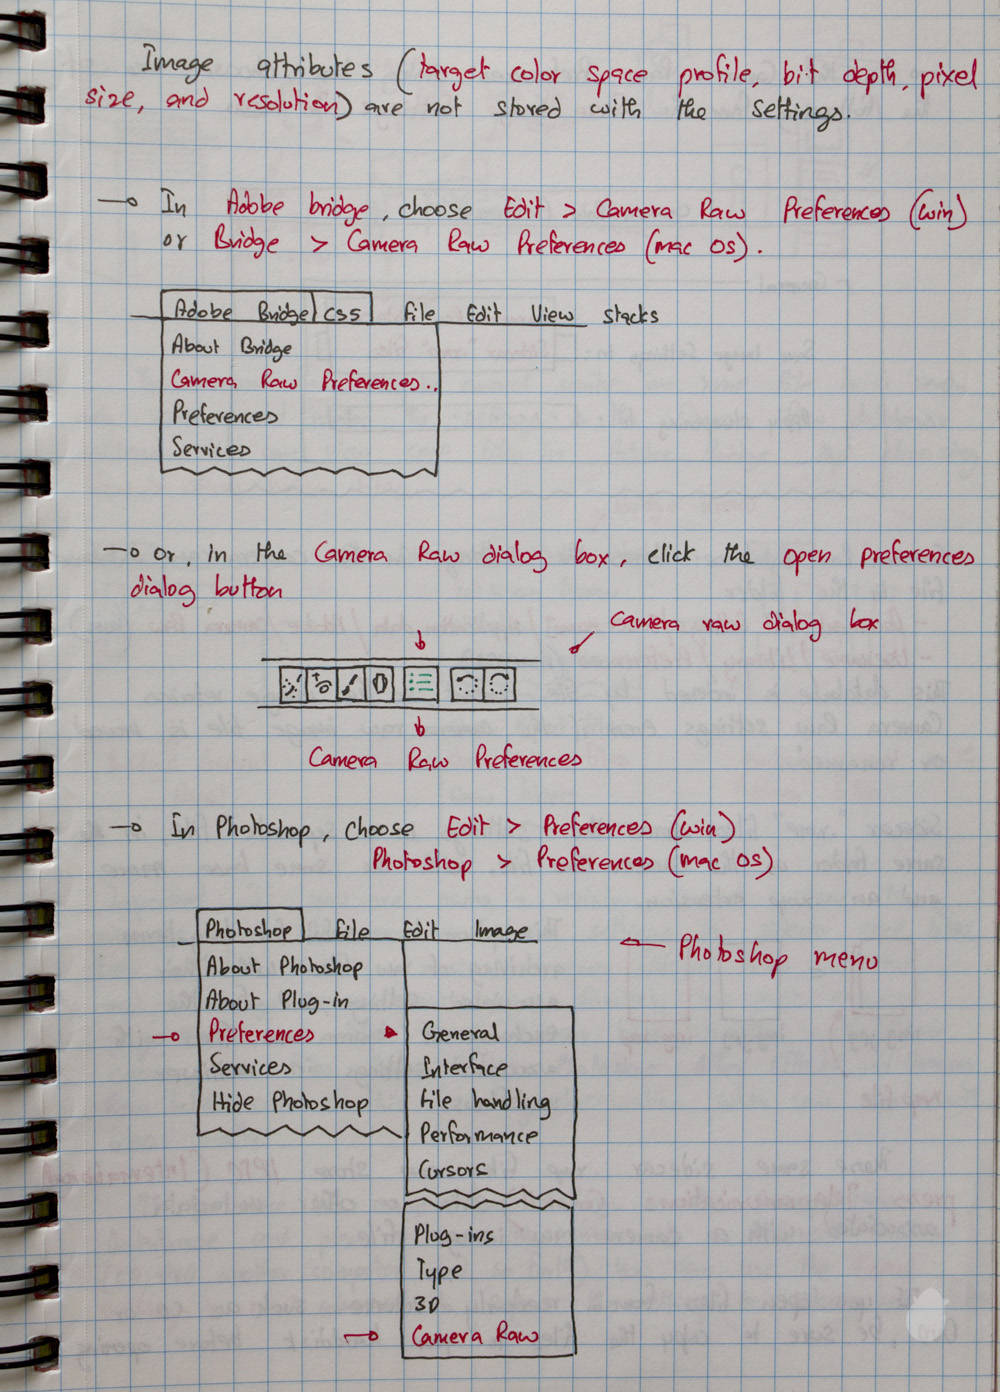 Image attributes (target color space profile, bit depth, pixel
size, and resolution) are not stored with the settings.
In Adobe bridge, choose Edit > Camera Raw Preferences (win)
or Bridge > Camera Raw Preferences (mac OS).
Adobe Bridge CS5 File Edit View stacks
About Bridge
Camera Raw Preferences..
Preferences
Services
or, in the Camera Raw dialog box, click the open preferences
dialog button
camera raw dialog box
Camera Raw Preferences
In Photoshop, choose Edit > Preferences (win)
Photoshop > Preferences (mac OS)
Photoshop File Edit Image
Photoshop menu
About Photoshop
About Plug-in
Preferences
Services
Hide Photoshop
General
Interface
File handling
Performance
Cursors
Plug-ins
Type
3D
Camera Raw